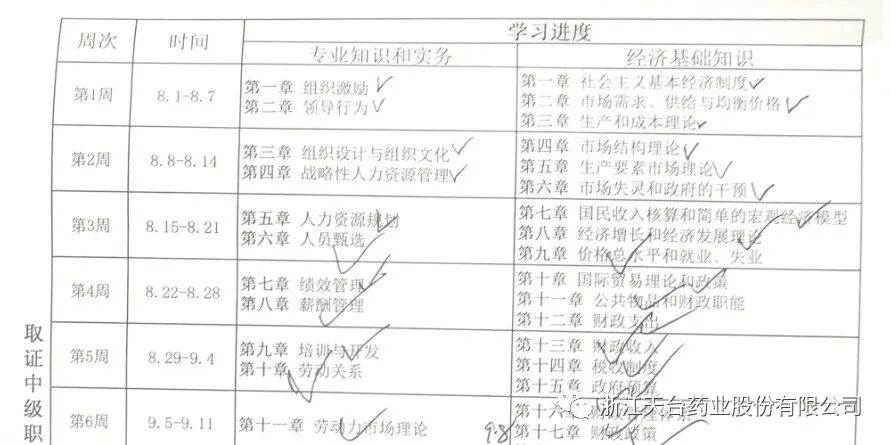 周次 时间 学习进度
专业知识和实务 经济基础知识
第1周 8.1-8.7
第一章 组织激励
第二章 领导行为
第一章 社会主义基本经济制度
第二章 市场需求、供给与均衡价格
第三章 生产和成本理论
第2周 8.8-8.14
第三章 组织设计与组织文化
第四章 战略性人力资源管理
第四章 市场结构理论
第五章 生产要素市场理论
第六章 市场失灵和政府的干预
第3周 8.15-8.21
第五章 人力资源规划
第六章 人员甄选
第七章 国民收入核算和简单的宏观经济模型
第八章 经济增长和经济发展理论
第九章 价格总水平和就业、失业
第4周 8.22-8.28
第七章 绩效管理
第八章 薪酬管理
第十章 国际贸易理论和政策
第十一章 公共物品和财政职能
第十二章 财政支出
第5周 8.29-9.4
第九章 培训与开发
第十章 劳动关系
第十三章 财政收入
第十四章 税收制度
第十五章 政府预算
第6周 9.5-9.11
第十一章 劳动力市场理论
9.8
第十六章 财政
第十七章 财政政策
取证中级职
浙江天台药业股份有限公司